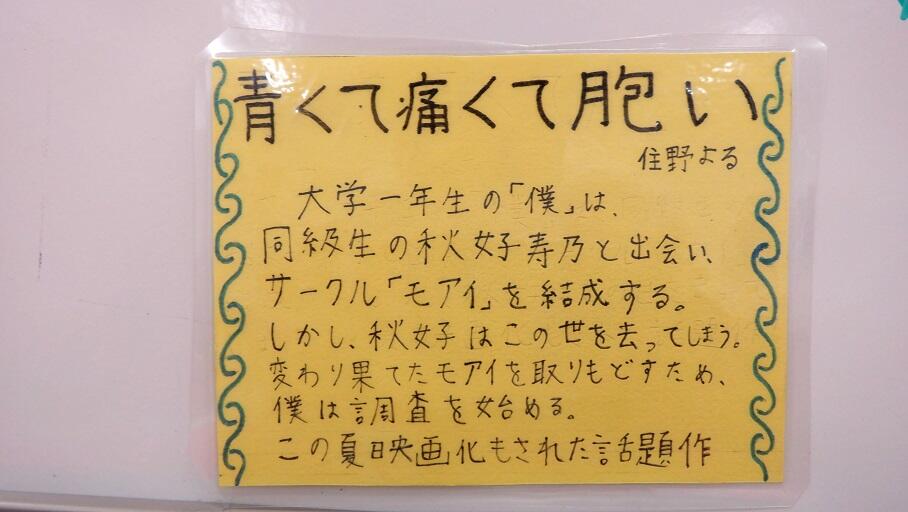 青くて痛くて脆い
住野よる
大学一年生の「僕」は、
同級生の秋好寿乃と出会い、
サークル「モアイ」を結成する。
しかし、秋好はこの世を去ってしまう。
変わり果てたモアイを取りもどすため、
僕は調査を始める。
この夏映画化もされた話題作